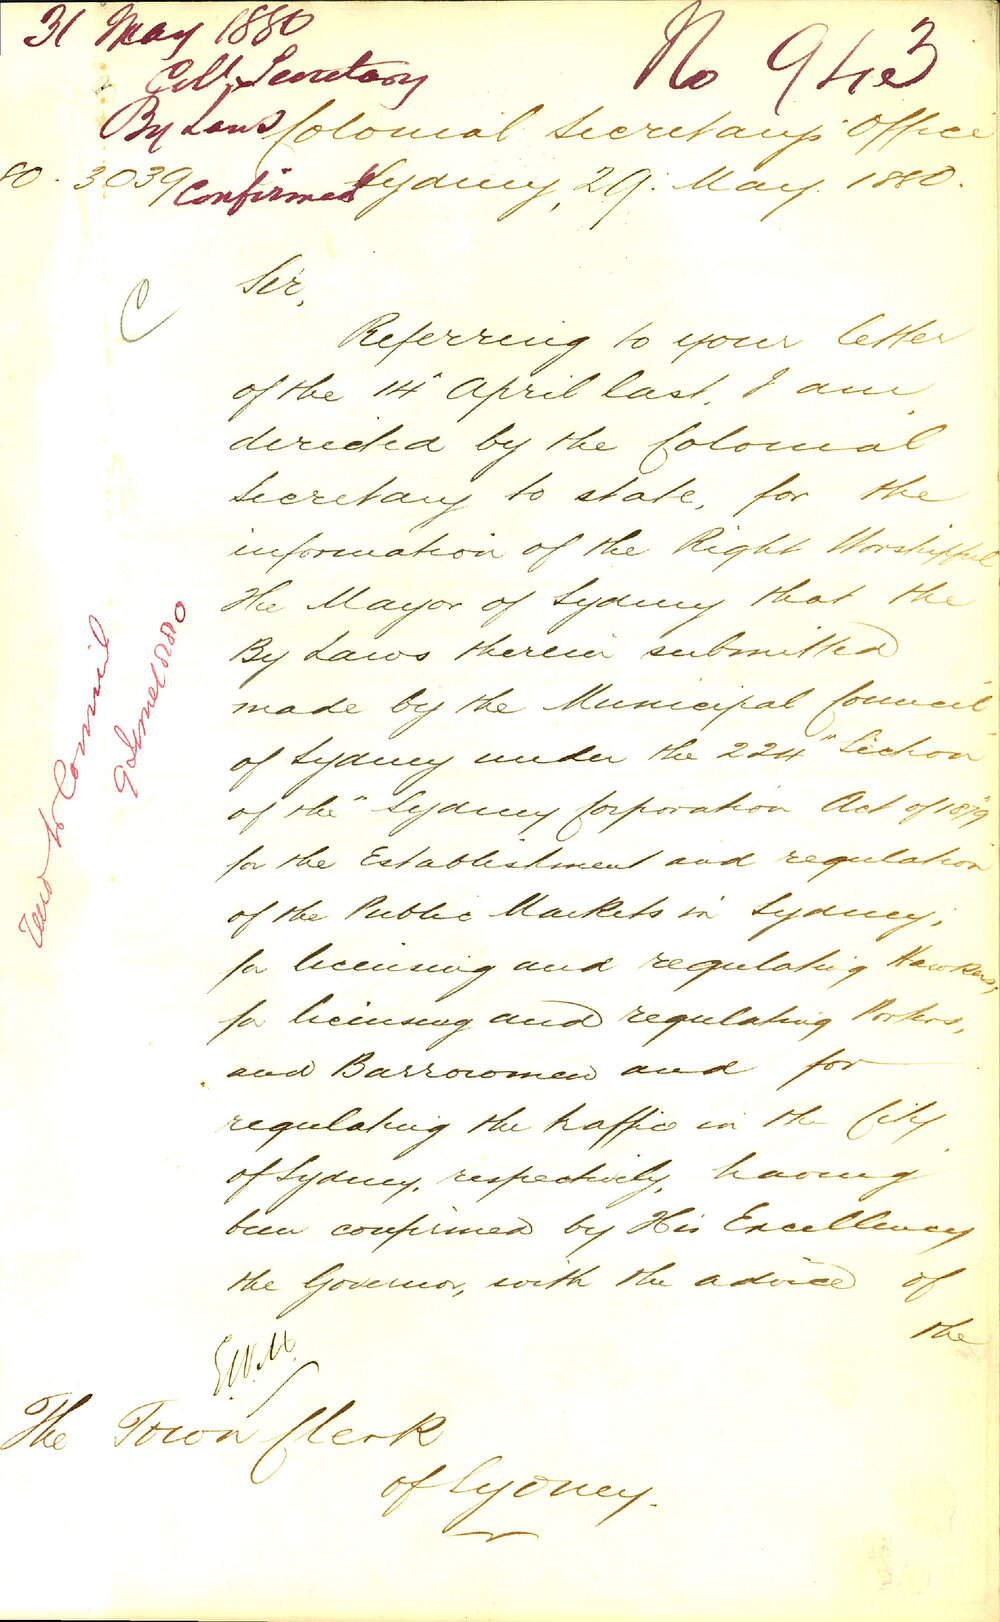 31 May 1880
No 943
Coll. Secretary
By Laws
Colonial Secretary's Office
80. 3039
Confirmed
Sydney, 29. May. 1880.
C
Sir,
Referring to your letter
of the 14" April last, I am
directed by the Colonial
Secretary to state, for the
information of the Right Worshipful
the Mayor of Sydney that the
By Laws therein submitted
made by the Municipal Council
of Sydney under the 224" Section
of the "Sydney Corporation Act of 1879"
for the Establishment and regulation
of the Public Markets in Sydney;
for licensing and regulating Hawkers;
for licensing and regulating Porters,
and Barrowmen and for
regulating the traffic in the City
of Sydney, respectively, having
been confirmed by His Excellency
the Governor, with the advice of
the
The Town Clerk
of Sydney.
to Council
9 June 1880